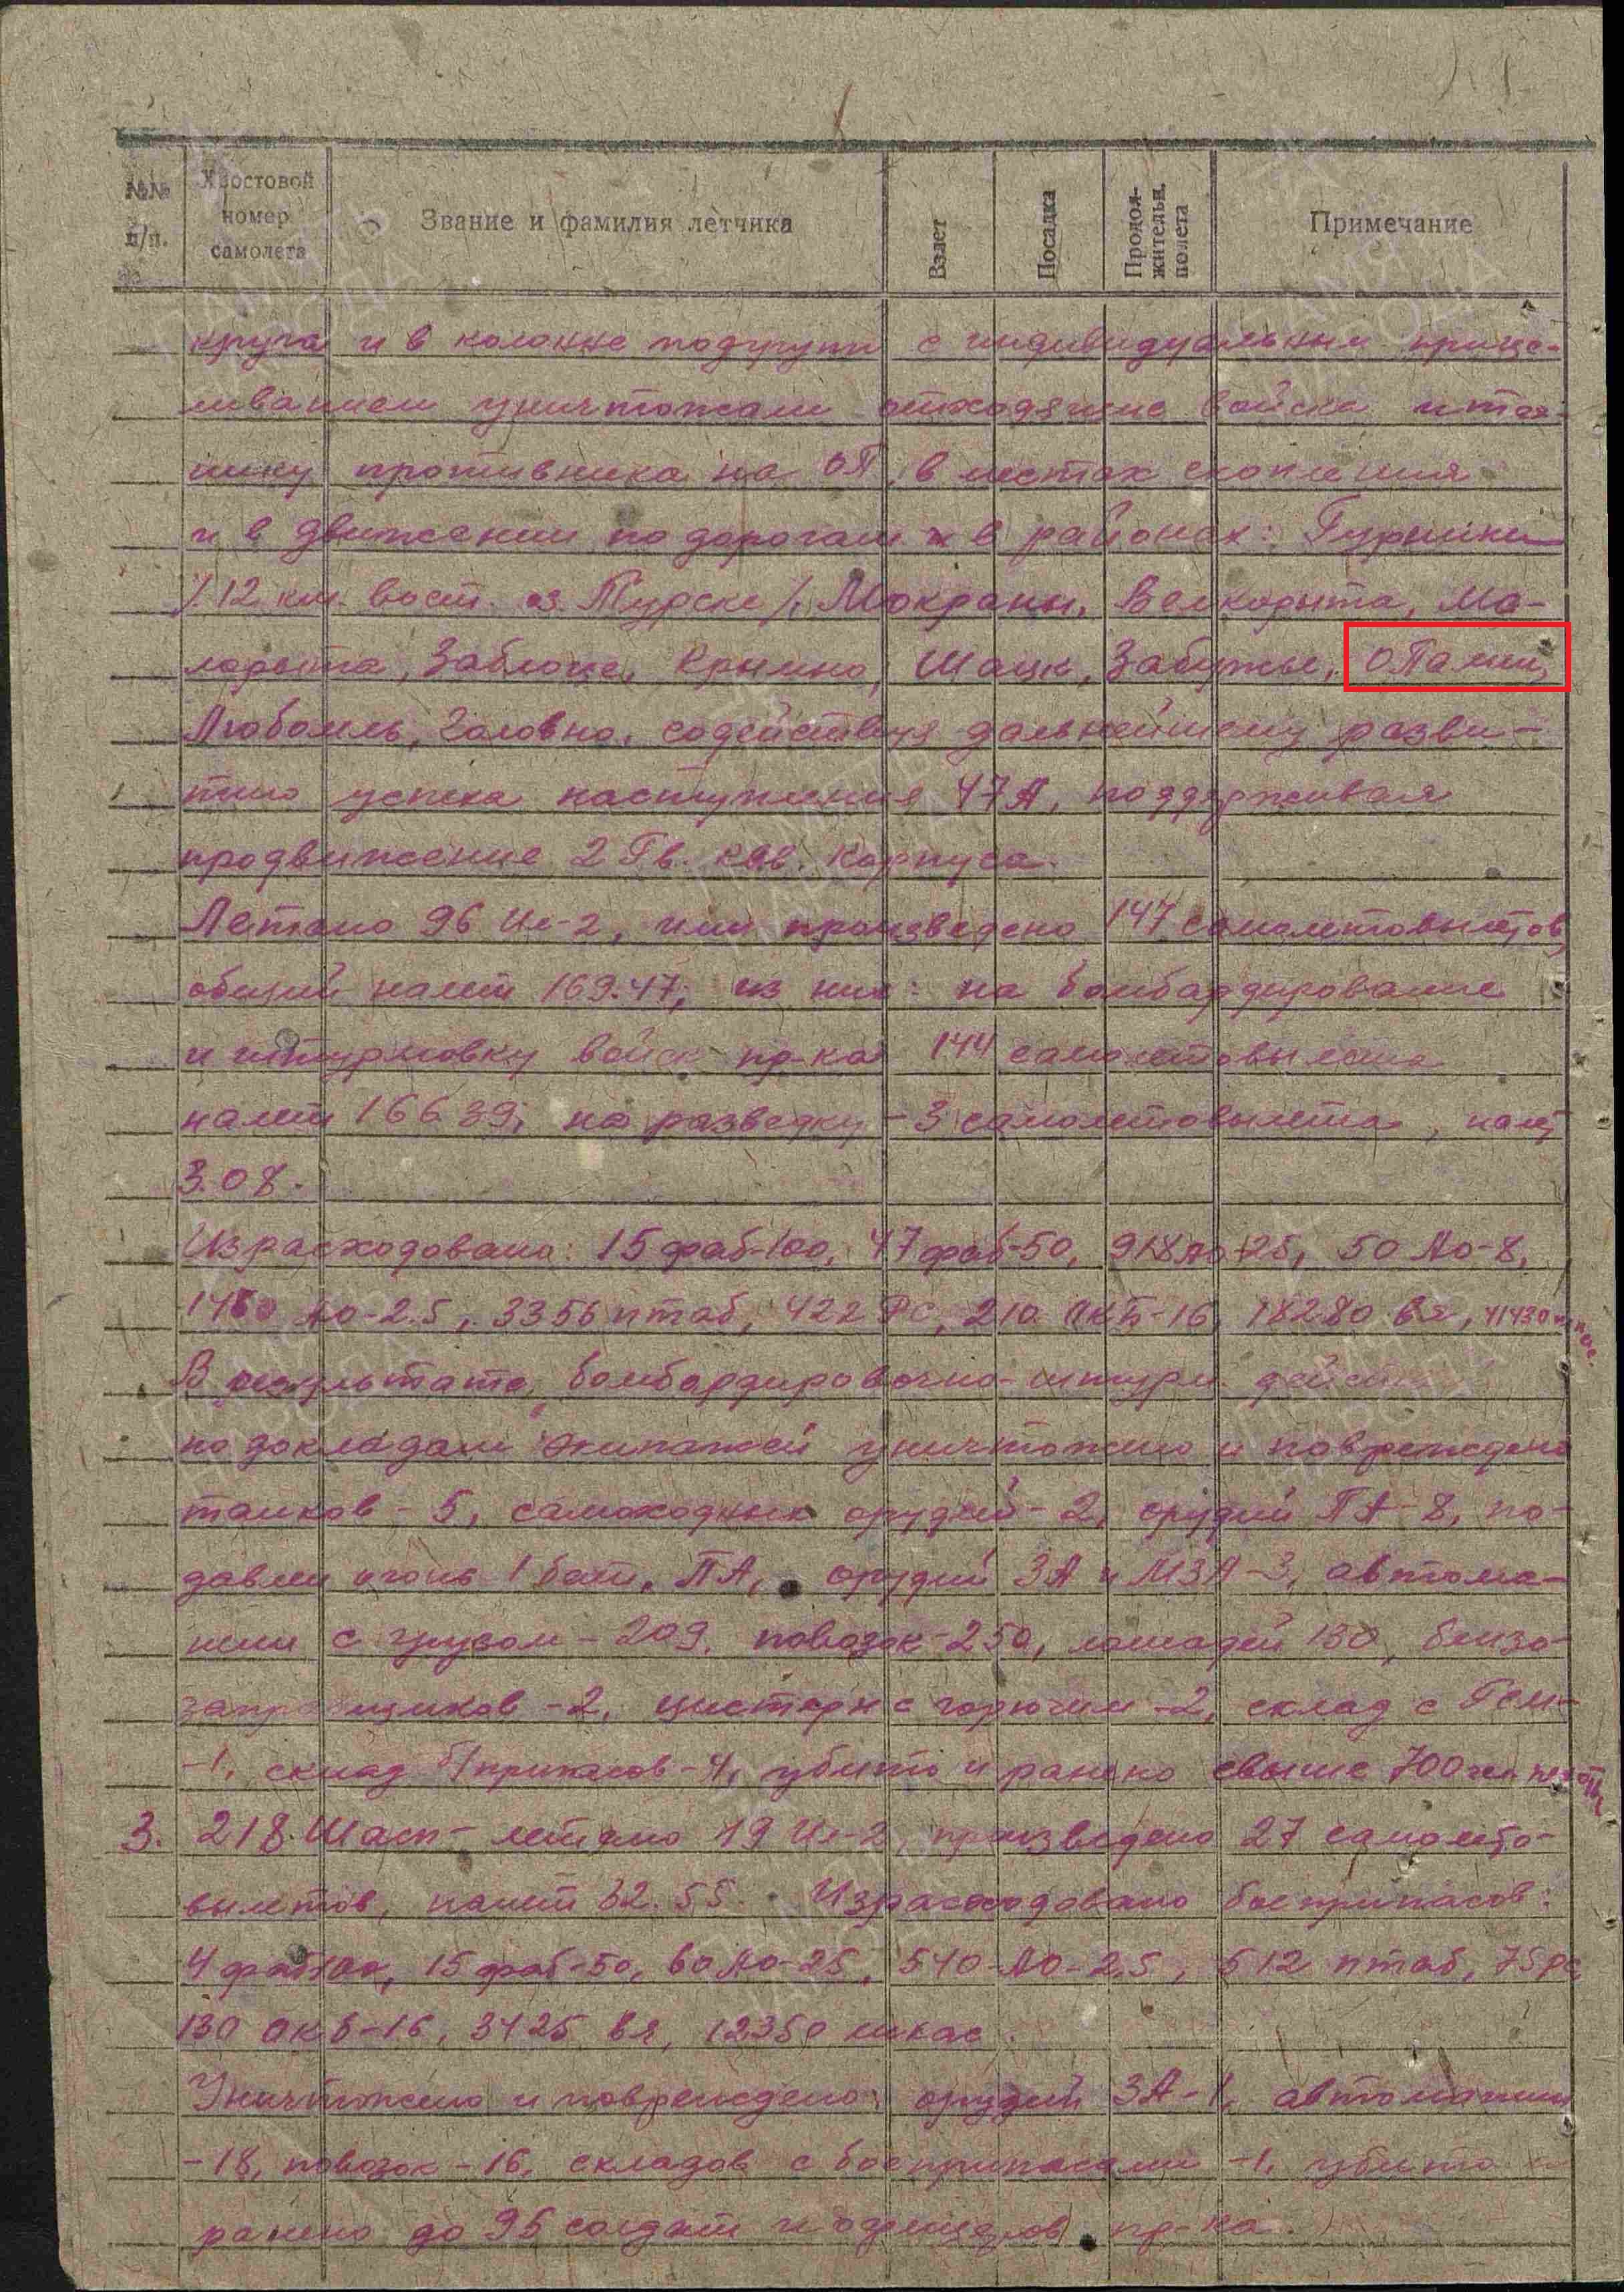 №№ п/п.
Хвостовой номер самолета
Звание и фамилия летчика
Взлет
Посадка
Продолжительн. полета
Примечание
круга и в колонне подгрупп с индивидуальным прице-
ливанием уничтожали отходящие войска и тех-
нику противника на ОП, в местах скопления
и в движении по дорогам и в районах:
/12 км. вост. оз. Турске/, Мокраны, Велкорыта, Ма-
лорыта, Заблоце, Крымно, Шацк, Забужье, Опалин,
Любомль, Головно, содействуя дальнейшему разви-
тию успеха наступления 47А, поддерживая
продвижение 2 Гв. кав. корпуса.
Летало 96 Ил-2, ими произведено 147 самолетовылетов,
общий налет 169.47, из них: на бомбардирование
и штурмовку войск пр-ка 144 самолетовылета
налет 166 39, на разведку - 3 самолетовылета, налет
3.08.
Израсходовано: 15 фаб-100, 47 фаб-50, 918 ао-25, 50 Ао-8,
Ао-2.5, 3356 птаб, 422 РС, 210 АКБ-16, 18280 вя, 41430 шкас.
В результате бомбардировочно-штурм. действий
по докладам экипажей уничтожено и повреждено
танков - 5, самоходных орудий - 2, орудий ПА - 8, по-
давлен огонь 1 бат. ПА, орудий ЗА и МЗА - 3, автома-
шин с грузом - 209, повозок - 250, лошадей 130, бензо-
заправщиков - 2, цистерн с горючим - 2, склад с Гсм -
- 1, склад б/припасов - 4, убито и ранено свыше 700 чел. пехоты
3. 218 Шасп - летало 19 Ил-2, произведено 27 самолето-
вылетов, налет 32.55. Израсходовано боеприпасов:
4 фаб100, 15 фаб-50, 60 Ао-25, 540 Ао-2.5, 512 птаб, 75 рс
130 акб-16, 3425 вя, 12350 шкас.
Уничтожено и повреждено: орудий ЗА - 1, автомашин
- 18, повозок - 16, складов с боеприпасами - 1, убито и
ранено до 95 солдат и офицеров пр-ка.